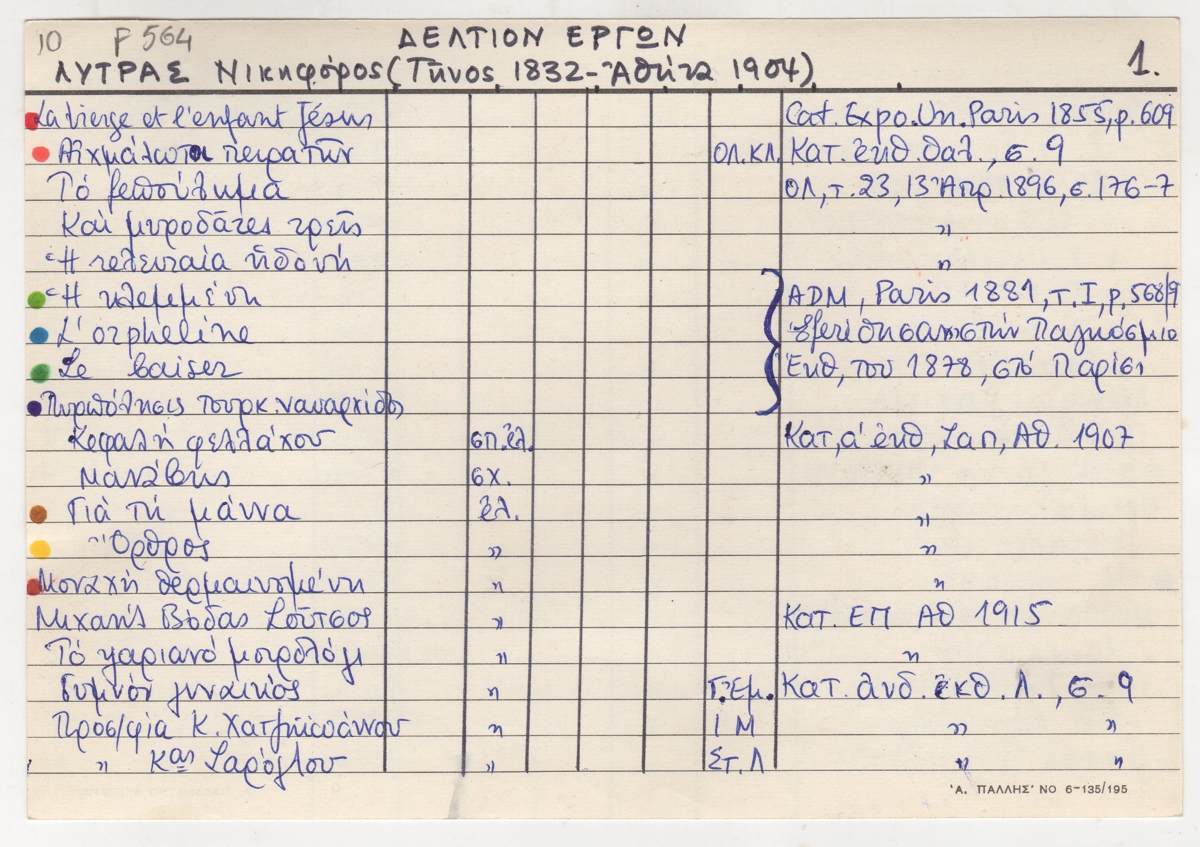 10 F 564 ΔΕΛΤΙΟΝ ΕΡΓΩΝ
ΛΥΤΡΑΣ Νικηφόρος (Τῆνος 1832-Ἀθήνα 1904) 1.
La vierge et l'enfant Jésus Cat. Expo. Un. Paris 1855, p. 609
Αἰχμάλωτοι πειρατῶν ΟΛ.ΚΛ. Κατ. ἐκθ. θαλ., σ. 9
Τό ξεπούλημα ΟΛ, τ. 23, 13 Ἀπρ. 1896, σ. 176-7
Καί μυροδάτες τρεῖς "
Ἡ τελευταία ἡδονή "
Ἡ κλεμμένη ADM, Paris 1881, T. I, p. 568/9
L'orpheline Ἐξετέθησαν στήν Παγκόσμιο
Le baiser Ἐκθ, του 1878, στό Παρίσι
Πυρπόλησις τουρκ. ναυαρχίδος
Κεφαλή φελλάχου σπ. ἐλ. Κατ, α' ἐκθ, Ζαπ, Αθ. 1907
Μανάβης σχ. "
Γιά τή μάννα ἐλ. "
Ὄρθρος " "
Μοναχή θερμαινομένη " "
Μιχαήλ Βόδας Σοῦτσος " Κατ. ΕΠ ΑΘ 1915
Τό ψαριανό μοιρολόγι " "
Γυμνόν γυναικός " Γ. Ἐμ. Κατ. ἀνδ. ἐκθ. Λ., σ. 9
Προσ/φία Κ. Χατζηϊωάννου " Ι Μ " "
" Κας Σαρόγλου " ΣΤ. Λ " "
'Α. ΠΑΛΛΗΣ' ΝΟ 6-135/195